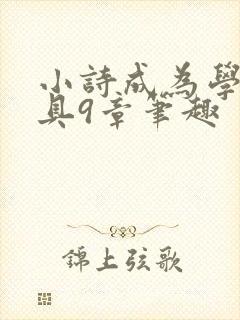 小詩成為學
具9章筆趣
錦上弦歌